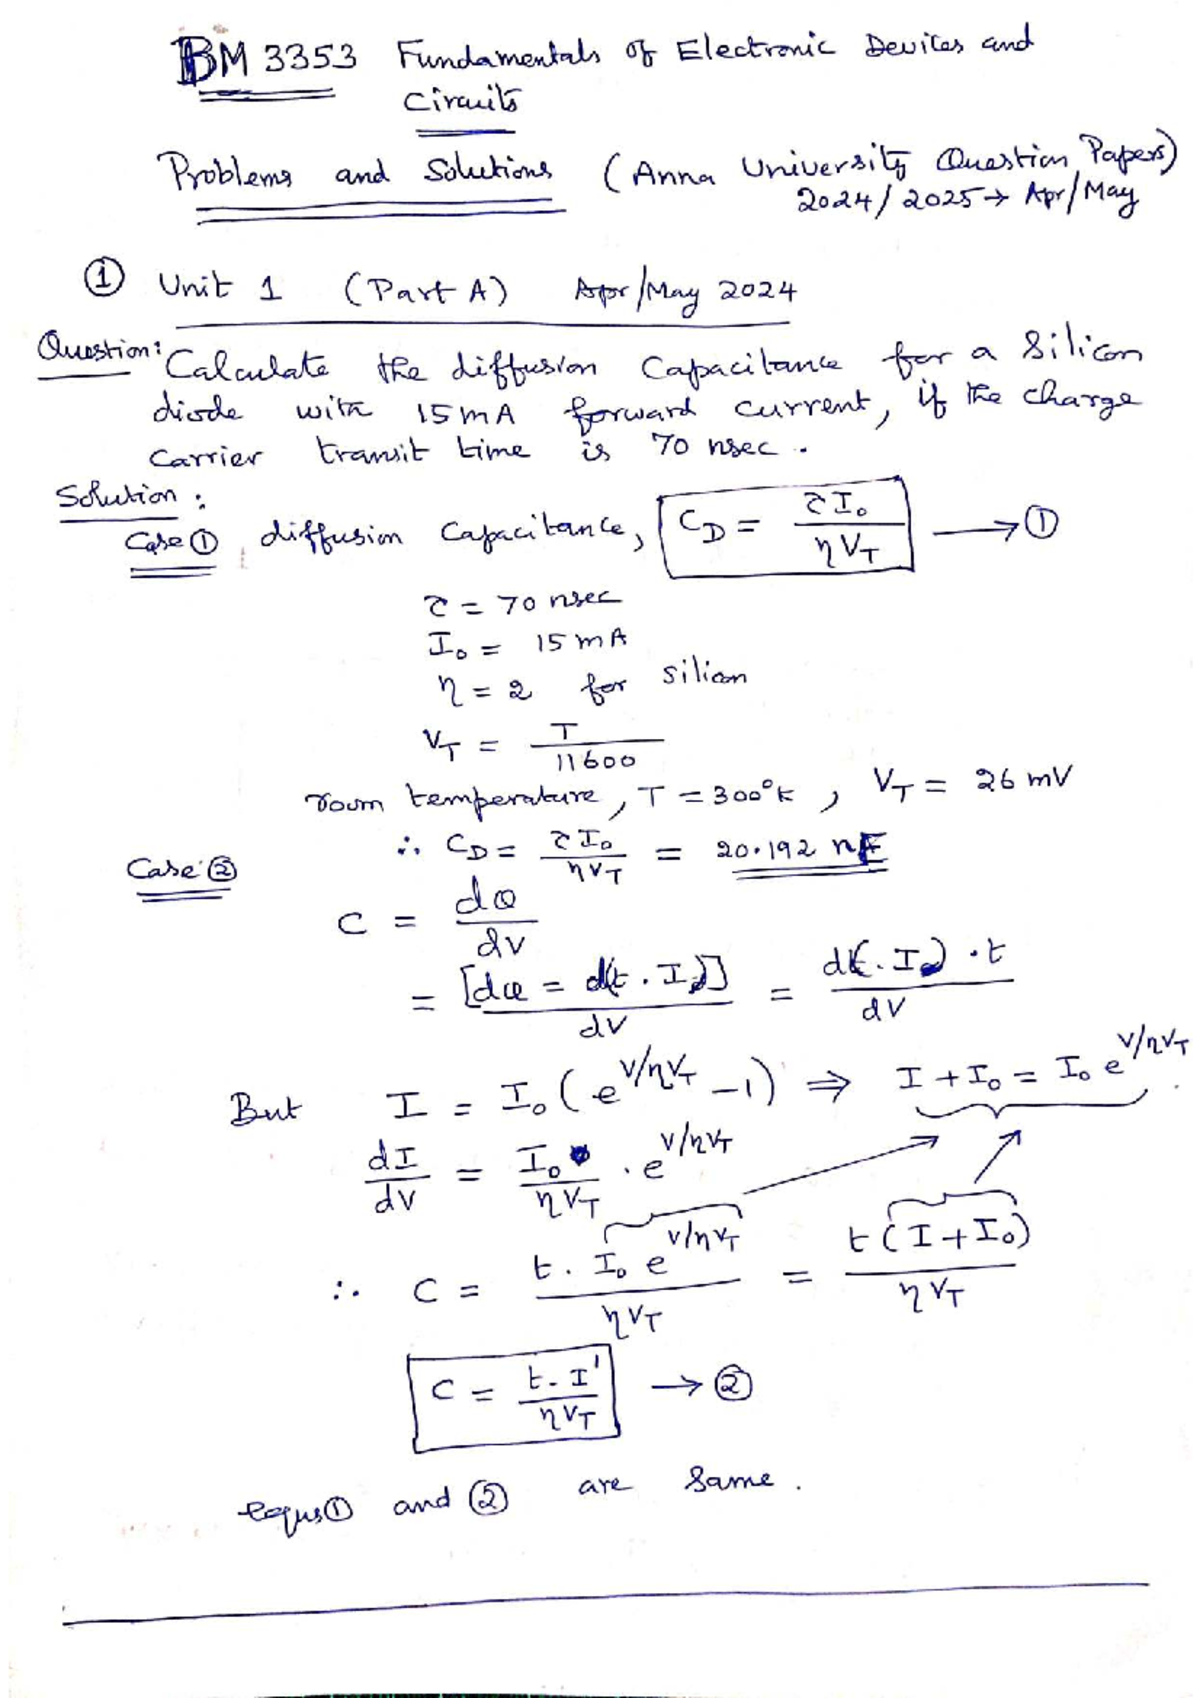 BM 3353 Fundamentals of Electronic Devices and
Circuits
Problems and Solutions (Anna University Question Papers)
2024/2025 → Apr/May
① Unit 1 (Part A) Apr/May 2024
Question: Calculate the diffusion Capacitance for a Silicon
diode with 15 mA forward current, if the charge
Carrier transit time is 70 nsec.
Solution:
Case ① diffusion Capacitance, C_D = τI₀ / ηV_T → ①
τ = 70 nsec
I₀ = 15 mA
η = 2 for silicon
V_T = T / 11600
room temperature, T = 300°K, V_T = 26 mV
∴ C_D = τI₀ / ηV_T = 20.192 nF
Case ②
C = dQ / dV
= [dQ = d(t . I₀)] / dV = d(. I₀) . t / dV
But I = I₀ (e^(V/ηV_T) - 1) ⇒ I + I₀ = I₀ e^(V/ηV_T)
dI / dV = I₀ / ηV_T . e^(V/ηV_T)
∴ C = t . I₀ e^(V/ηV_T) / ηV_T = t (I + I₀) / ηV_T
C = t . I' / ηV_T → ②
equs ① and ② are same.